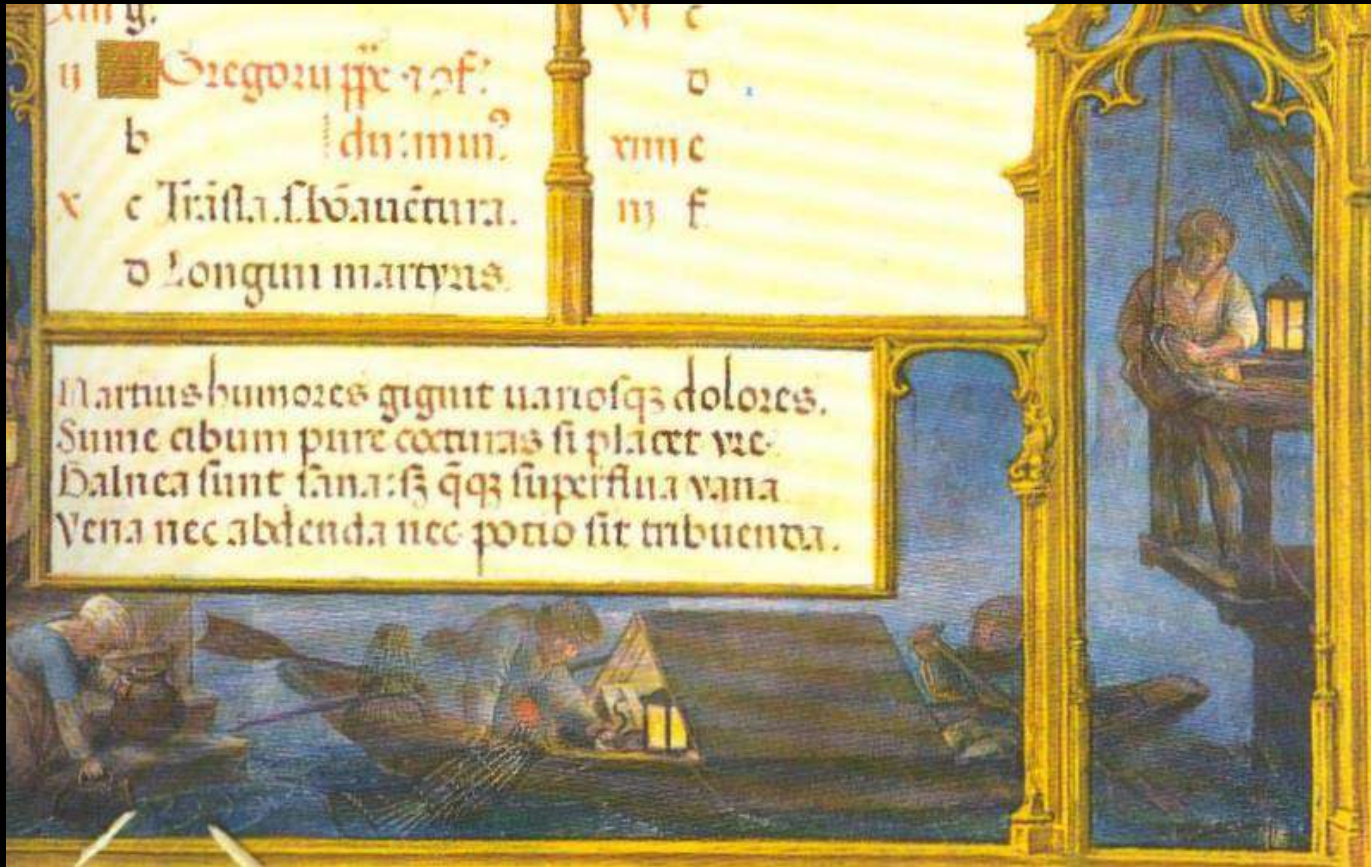 xiii g.
ij Gregorii ppe ⁊ ɔf.
b
dn: min⁹.
x c Trãsla. s. boãuẽtura.
d Longini martyris.
vi c
d
xiiii e
iij f
Martius humores gignit uariosqꝫ dolores.
Sume cibum pure cocturas si placet vre.
Balnea sunt sana: sꝫ q̃qꝫ superflua vana
Vena nec abdenda nec potio sit tribuenda.